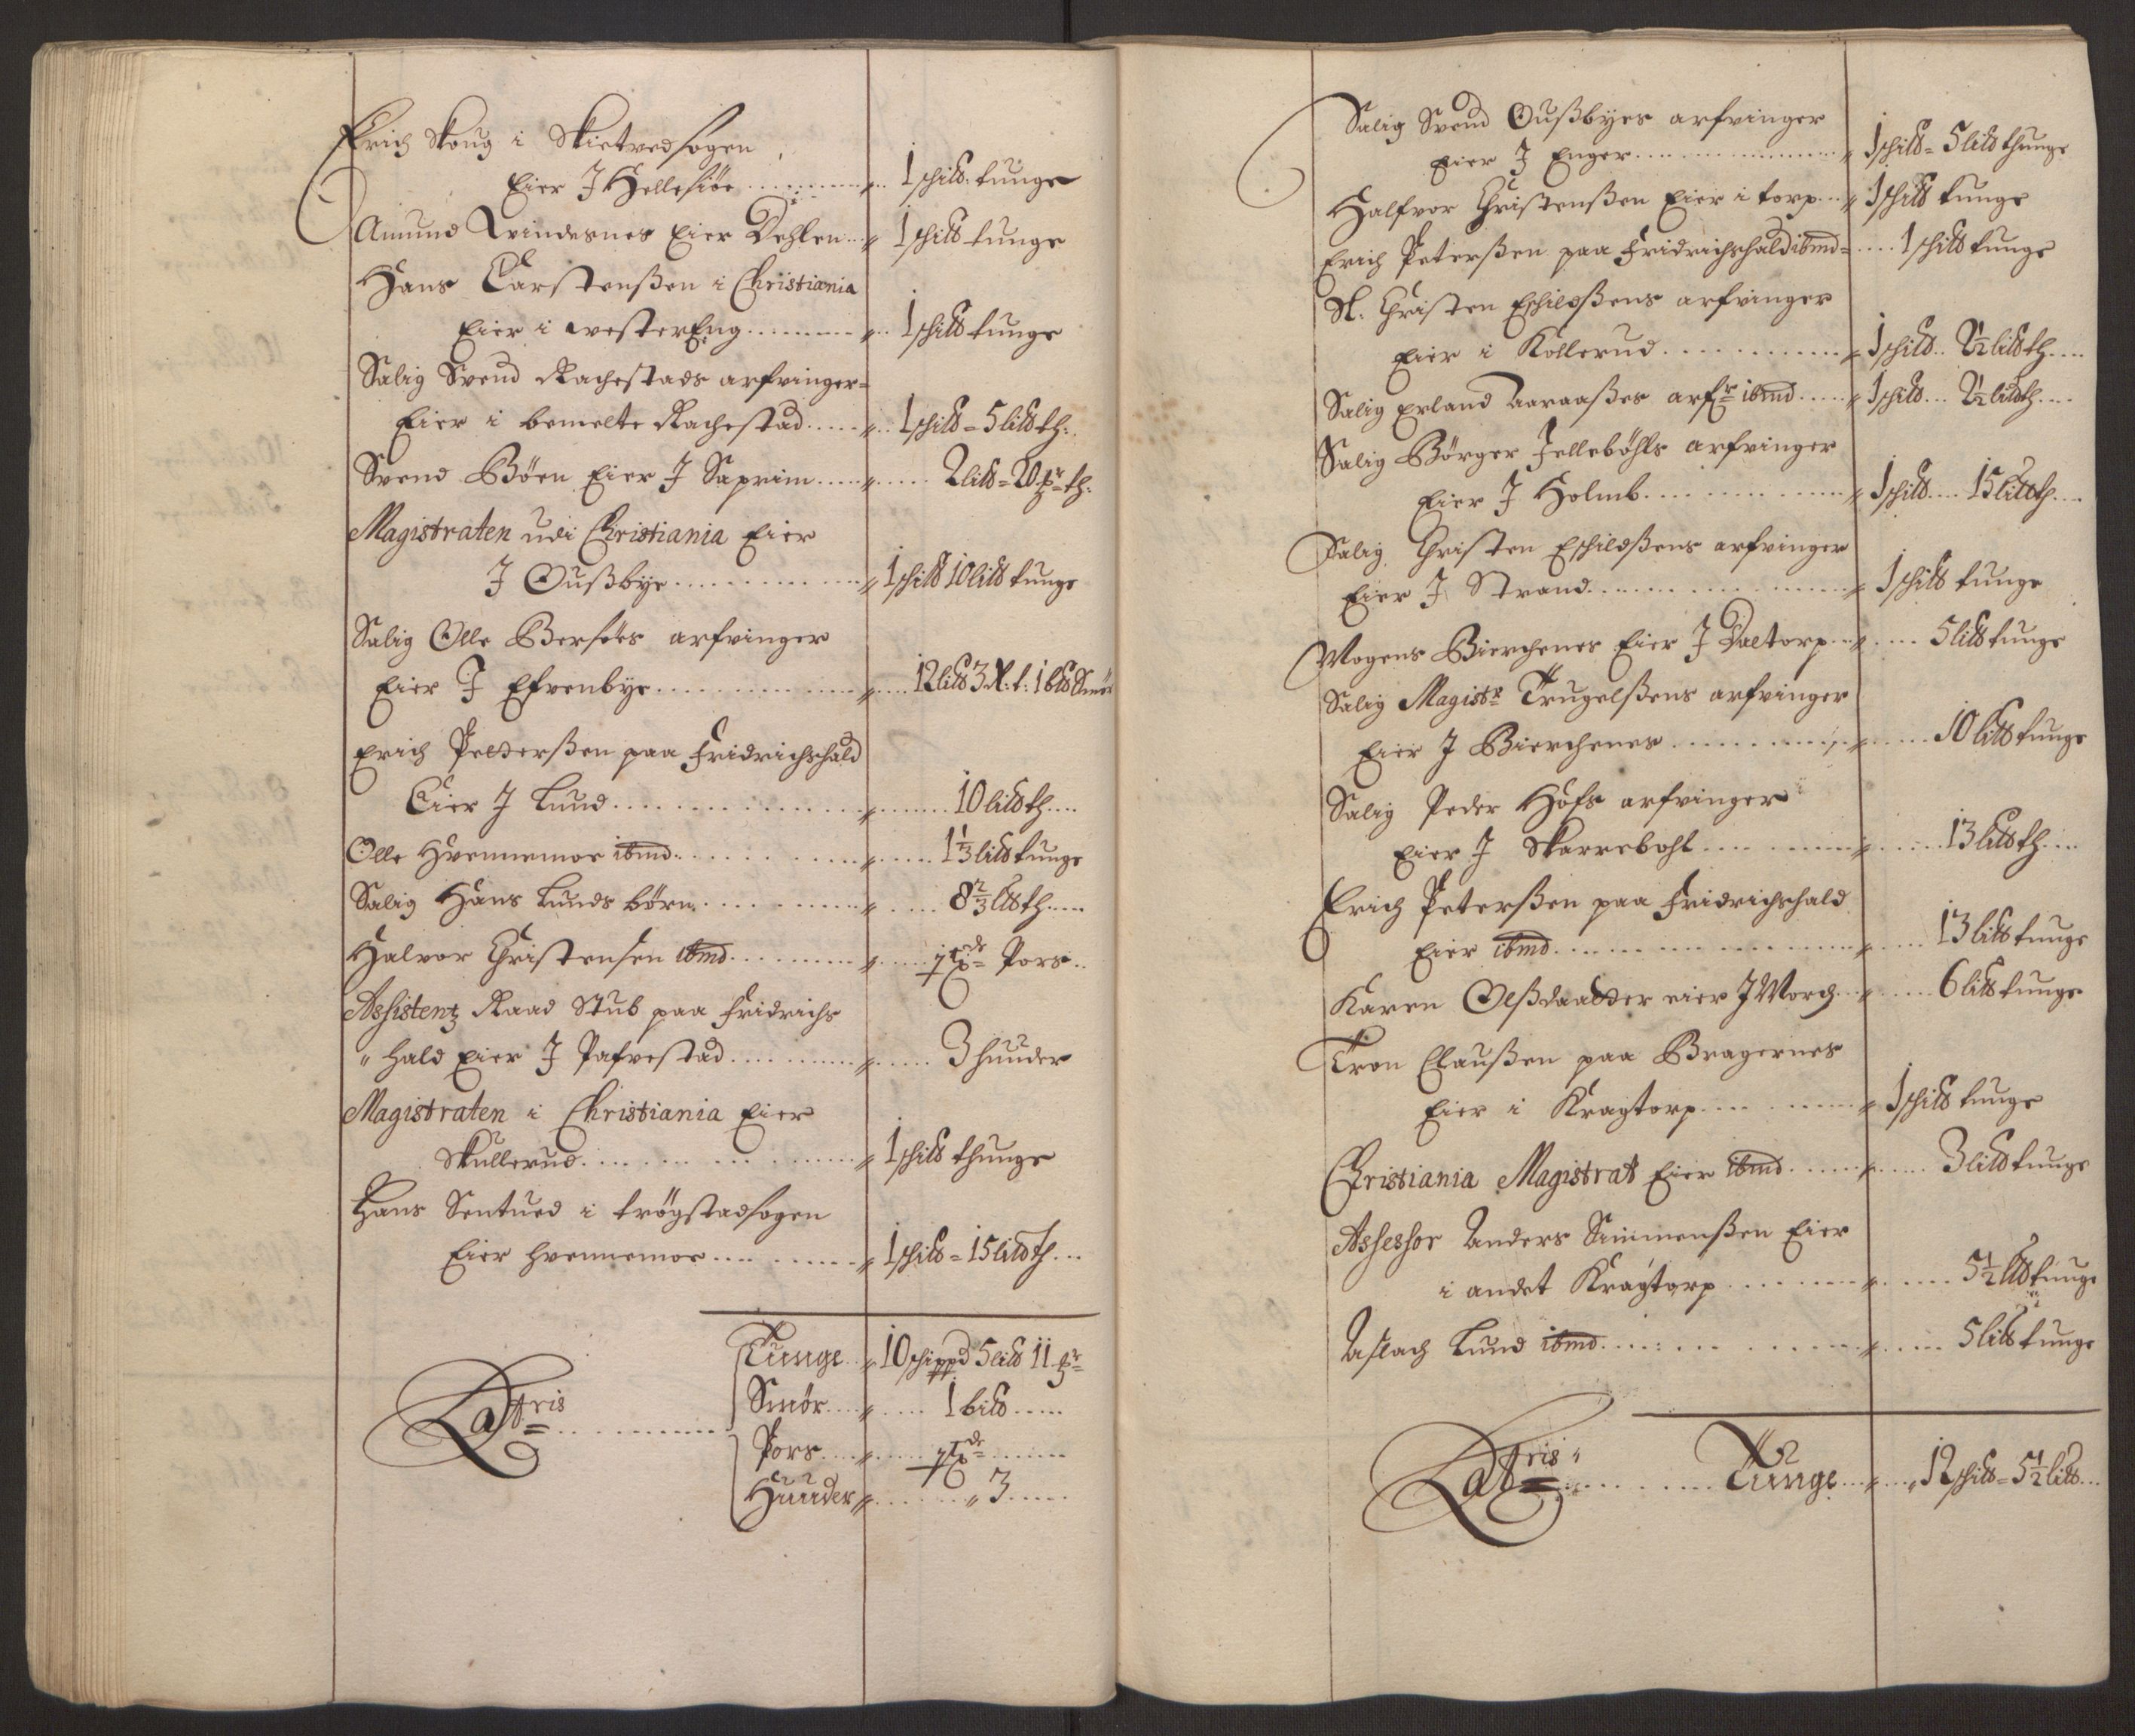 Erich Skoug i Skietvedsogen
Eier J Hellesiøe 1 schild. tunge
Amund Qvindesnes Eier Dehlen 1 schild tunge
Hans Carstenßen i Christiania
Eier i westerEng 1 schild tunge
Salig Svend Rachestads arfvinger
Eier i bemelte Rachestad 1 schild 5 lild th:
Svend Böen Eier J Saprim 2 lild 20 th.
Magistraten udi Christiania Eier
J Oußbye 1 schild 10 lild tunge
Salig Olle Bersøes arfvinger
Eier J Efvenbye 12 lild 3 t: 1 bld Smör
Erich Pedersßen paa Fridrichshald
Eier J Lund 10 lild th
Olle Hvennemoe ibmd 1 1/3 lild tunge
Salig Hans Lunds börn 8 2/3 lld th
Halvor Christensen ibmd Pors
Assistentz Raad Stub paa Fridrichs
hald Eier J Pafvestad 3 huuder
Magistraten i Christiania Eier
Skullerud 1 schild thunge
Hans Sentued i trögstadsogen
Eier hvennemoe 1 schild 15 lild th
Lat ris Tunge 10 schippd 5 lild 11
Smör 1 bild
Pors
Huuder 3
Salig Svend Oußbyes arfvinger
Eier J Enger 1 schild 5 lild thunge
Halfvor Christenßen Eier i torp 1 schild tunge
Erich Peterßen paa Fridrichshald ibmd 1 schild tunge
Sl. Christen Eschildßens arfvinger
Eier i Kollerud 1 schild 2 1/2 lild th
Salig Erland Aaraaßes arfr ibmd 1 schild 2 1/2 lild th
Salig Börger Jelleböhls arfvinger
Eier J Holmb 1 schild 15 lild th
Salig Christen Eschildßens arfvinger
Eier J Strand 1 schild tunge
Mogens Bierchenes Eier J Daltorp 5 lild tunge
Salig Magistr Trugelßens arfvinger
Eier J Bierchenes 10 lild tunge
Salig Peder Hofs arfvinger
Eier J Skarrebohl 13 lild th
Erich Peterßen paa Fridrichshald
Eier ibmd 13 lild tunge
Karen Olßdaatter eier J Morch 6 lild tunge
Tron Claußen paa Bragernes
Eier i Kragtorp 1 schild tunge
Christiania Magistrat Eier ibmd 3 lild tunge
Assessor Anders Simmenßen Eier
i andet Kragtorp 5 1/2 lld tunge
Aslach Lund ibmd 5 lild tunge
Lat ris Tunge 12 schild 5 1/2 lild